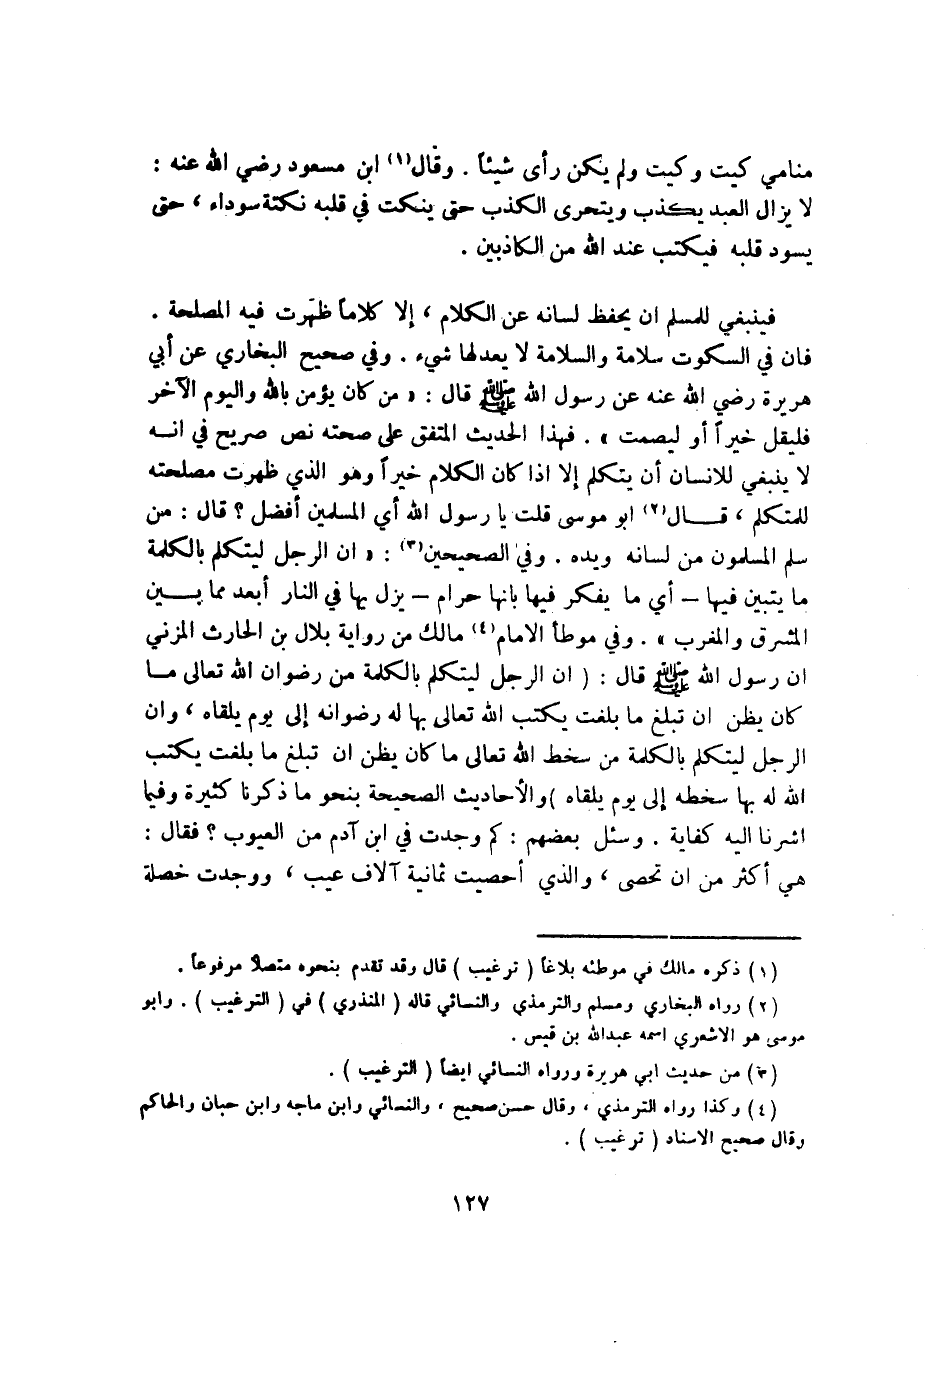 منامي كيت وكيت ولم يكن رأى شيئاً . وقال(١) ابن مسعود رضي الله عنه :
لا يزال العبد يكذب ويتحرى الكذب حتى ينكت في قلبه نكتة سوداء ، حتى
يسود قلبه فيكتب عند الله من الكاذبين .
فينبغي للمسلم ان يحفظ لسانه عن الكلام ، إلا كلاماً ظهرت فيه المصلحة .
فان في السكوت سلامة والسلامة لا يعدلها شيء . وفي صحيح البخاري عن أبي
هريرة رضي الله عنه عن رسول الله ﷺ قال : « من كان يؤمن بالله واليوم الآخر
فليقل خيراً أو ليصمت » . فهذا الحديث المتفق على صحته نص صريح في انـه
لا ينبغي للانسان أن يتكلم إلا اذا كان الكلام خيراً وهو الذي ظهرت مصلحته
للمتكلم ، قـــال(٢) ابو موسى قلت يا رسول الله أي المسلمين أفضل ؟ قال : من
سلم المسلمون من لسانه ويده . وفي الصحيحين(٣) : « ان الرجل ليتكلم بالكلمة
ما يتبين فيها – أي ما يفكر فيها بانها حرام – يزل بها في النار أبعد مما بـــين
المشرق والمغرب » . وفي موطأ الامام(٤) مالك من رواية بلال بن الحارث المزني
ان رسول الله ﷺ قال : ( ان الرجل ليتكلم بالكلمة من رضوان الله تعالى مـا
كان يظن ان تبلغ ما بلغت يكتب الله تعالى بها له رضوانه إلى يوم يلقاه ، وان
الرجل ليتكلم بالكلمة من سخط الله تعالى ما كان يظن ان تبلغ ما بلغت يكتب
الله له بها سخطه إلى يوم يلقاه ) والأحاديث الصحيحة بنحو ما ذكرنا كثيرة وفيما
اشرنا اليه كفاية . وسئل بعضهم : كم وجدت في ابن آدم من العيوب ؟ فقال :
هي أكثر من ان تحصى ، والذي أحصيت ثمانية آلاف عيب ، ووجدت خصلة
(١) ذكره مالك في موطئه بلاغاً ( ترغيب ) قال وقد تقدم بنحوه متصلاً مرفوعاً .
(٢) رواه البخاري ومسلم والترمذي والنسائي قاله ( المنذري ) في ( الترغيب ) . وابو
موسى هو الاشعري اسمه عبدالله بن قيس .
(٣) من حديث ابي هريرة ورواه النسائي ايضاً ( الترغيب ) .
(٤) وكذا رواه الترمذي ، وقال حسن صحيح ، والنسائي وابن ماجه وابن حبان والحاكم
وقال صحيح الاسناد ( ترغيب ) .
١٢٧